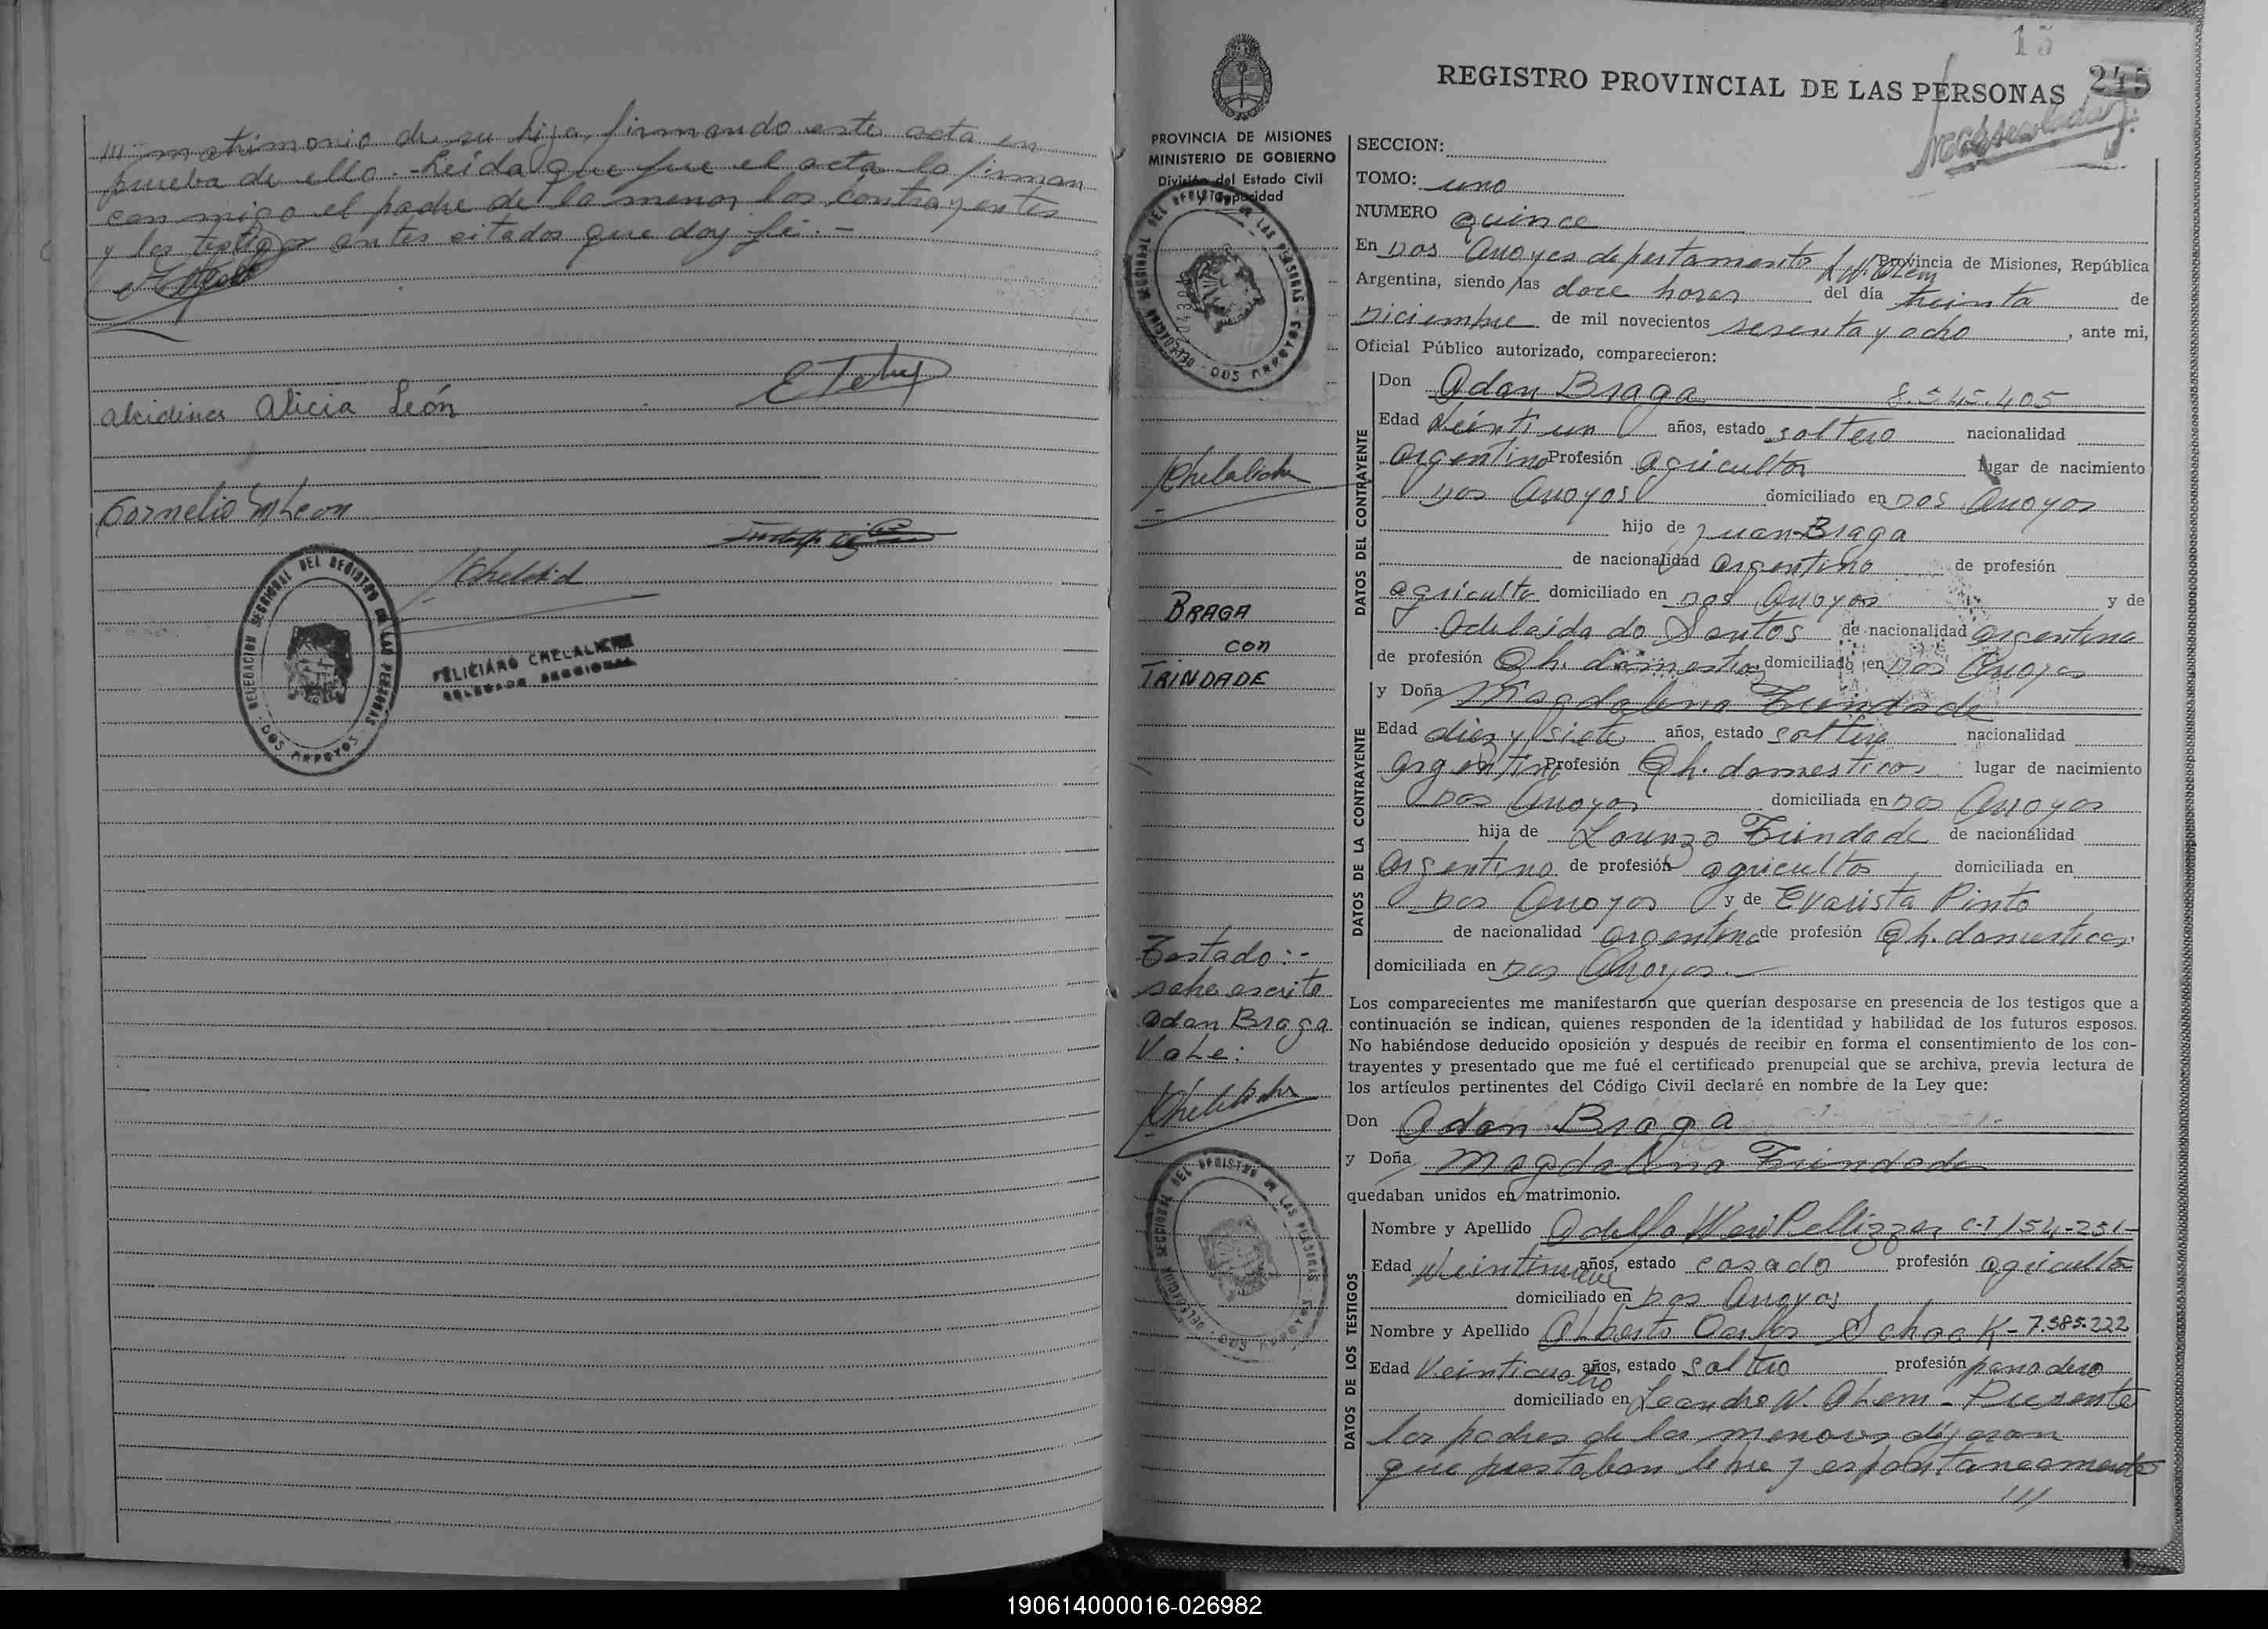 /// matrimonio de su hija, firmando este acta en
prueba de ello.- Leida que fue el acta la firman
con migo el padre de la menor, los contrayentes
y los testigos antes citados que doy fé.-
Alcidinea Alicia León
Cornelio M Leon
DELEGACION SECCIONAL DEL REGISTRO DE LAS PERSONAS
DOS ARROYOS
FELICIANO CHELALICHE
DELEGADO SECCIONAL
15
245
REGISTRO PROVINCIAL DE LAS PERSONAS
PROVINCIA DE MISIONES
MINISTERIO DE GOBIERNO
División del Estado Civil
y Capacidad
DELEGACION SECCIONAL DEL REGISTRO DE LAS PERSONAS
DOS ARROYOS
BRAGA
con
TRINDADE
Testado:-
sobre escrito
Adan Braga
Vale:
DELEGACION SECCIONAL DEL REGISTRO DE LAS PERSONAS
DOS ARROYOS
SECCION:
TOMO: uno
NUMERO quince
En Dos Arroyos departamento L.N. Alem Provincia de Misiones, República
Argentina, siendo las doce horas del día treinta de
Diciembre de mil novecientos sesenta y ocho, ante mi,
Oficial Público autorizado, comparecieron:
DATOS DEL CONTRAYENTE
Don Adan Braga 8.545.405
Edad Veinti un años, estado soltero nacionalidad
argentino Profesión agricultor lugar de nacimiento
Dos Arroyos domiciliado en Dos Arroyos
hijo de Juan Braga
de nacionalidad argentino de profesión
agricultor domiciliado en Dos Arroyos y de
Adelaida do Santos de nacionalidad argentina
de profesión Qh. domesticos domiciliado en Dos Arroyos
DATOS DE LA CONTRAYENTE
y Doña Magdalena Trindade
Edad diez y siete años, estado soltera nacionalidad
argentina Profesión Qh. domesticos lugar de nacimiento
Dos Arroyos domiciliada en Dos Arroyos
hija de Lorenzo Trindade de nacionalidad
argentino de profesión agricultor domiciliada en
Dos Arroyos y de Evarista Pinto
de nacionalidad argentina de profesión Qh. domesticos
domiciliada en Dos Arroyos.-
Los comparecientes me manifestaron que querían desposarse en presencia de los testigos que a
continuación se indican, quienes responden de la identidad y habilidad de los futuros esposos.
No habiéndose deducido oposición y después de recibir en forma el consentimiento de los con-
trayentes y presentado que me fué el certificado prenupcial que se archiva, previa lectura de
los artículos pertinentes del Código Civil declaré en nombre de la Ley que:
Don Adan Braga
y Doña Magdalena Trindade
quedaban unidos en matrimonio.
DATOS DE LOS TESTIGOS
Nombre y Apellido Adolfo Pellizzer C.I 154-251-
Edad Veintinueve años, estado casado profesión agricultor
domiciliado en Dos Arroyos
Nombre y Apellido Alberto Carlos Schock - 7.585.222
Edad Veinticuatro años, estado soltero profesión panadero
domiciliado en Leandro N. Alem - Presente
los padres de los menores dijeron
que prestaban libre y espontaneamente
///
190614000016-026982